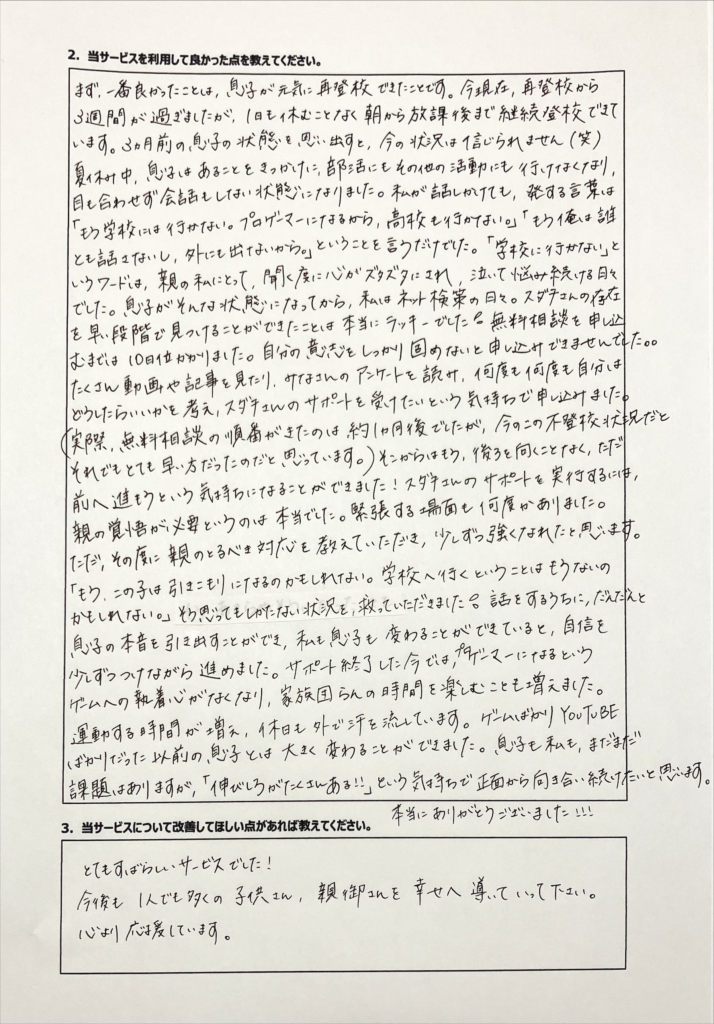 2. 当サービスを利用して良かった点を教えてください。
まず、一番良かったことは、息子が元気に再登校できたことです。今現在、再登校から
3週間が過ぎましたが、1日も休むことなく朝から放課後まで継続登校できて
います。3ヵ月前の息子の状態を思い出すと、今の状況は信じられません(笑)
夏休み中、息子はあることをきっかけに、部活にもその他の活動にも行けなくなり、
目も合わせず会話もしない状態になりました。私が話しかけても、発する言葉は
「もう学校には行かない。プロゲーマーになるから、高校も行かない。」「もう俺は誰
とも話さないし、外にも出ないから。」ということを言うだけでした。「学校に行かない」と
いうワードは、親の私にとって、聞く度に心がズタズタにされ、泣いて悩み続ける日々
でした。息子がそんな状態になってから、私はネット検策の日々。スダチさんの存在
を早い段階で見つけることができたことは本当にラッキーでした。無料相談を申し込
むまでは10日位かかりました。自分の意志をしっかり固めないと申し込みできませんでした。。
たくさん動画や記事を見たり、みなさんのアンケートを読み、何度も何度も自分は
どうしたらいいかを考え、スダチさんのサポートを受けたいという気持ちで申し込みました。
(実際、無料相談の順番がきたのは約1ヵ月後でしたが、今のこの不登校状況だと
それでもとても早い方だったのだと思っています。)そこからはもう、後ろを向くことなく、ただ
前へ進もうという気持ちになることができました!スダチさんのサポートを実行するには、
親の覚悟が必要というのは本当でした。緊張する場面も何度かありました。
ただ、その度に親のとるべき対応を教えていただき、少しずつ強くなれたと思います。
「もう、この子は引きこもりになるのかもしれない。学校へ行くということはもうないの
かもしれない。」そう思ってもしかたない状況を、救っていただきました。話をするうちに、だんだんと
息子の本音を引き出すことができ、私も息子も変わることができていると、自信を
少しずつつけながら進めました。サポート終了した今では、プロゲーマーになるという
ゲームへの執着心がなくなり、家族団らんの時間を楽しむことも増えました。
運動する時間が増え、休日も外で汗を流しています。ゲームばかりYOUTUBE
ばかりだった以前の息子とは大きく変わることができました。息子も私も、まだまだ
課題はありますが、「伸びしろがたくさんある!!」という気持ちで正面から向き合い続けたいと思います。
本当にありがとうございました!!!
3. 当サービスについて改善してほしい点があれば教えてください。
とてもすばらしいサービスでした!
今後も1人でも多くの子供さん、親御さんを幸せへ導いていって下さい。
心より応援しています。